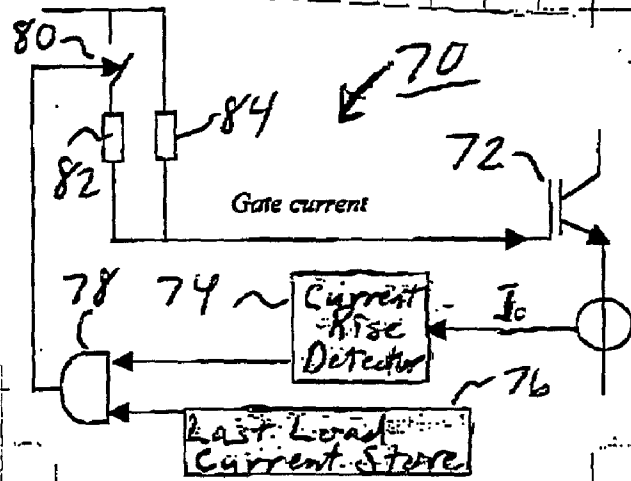 80
70
84
72
82
Gate current
78
74
Current
Rise
Detector
Ic
76
Last Load
Current Store